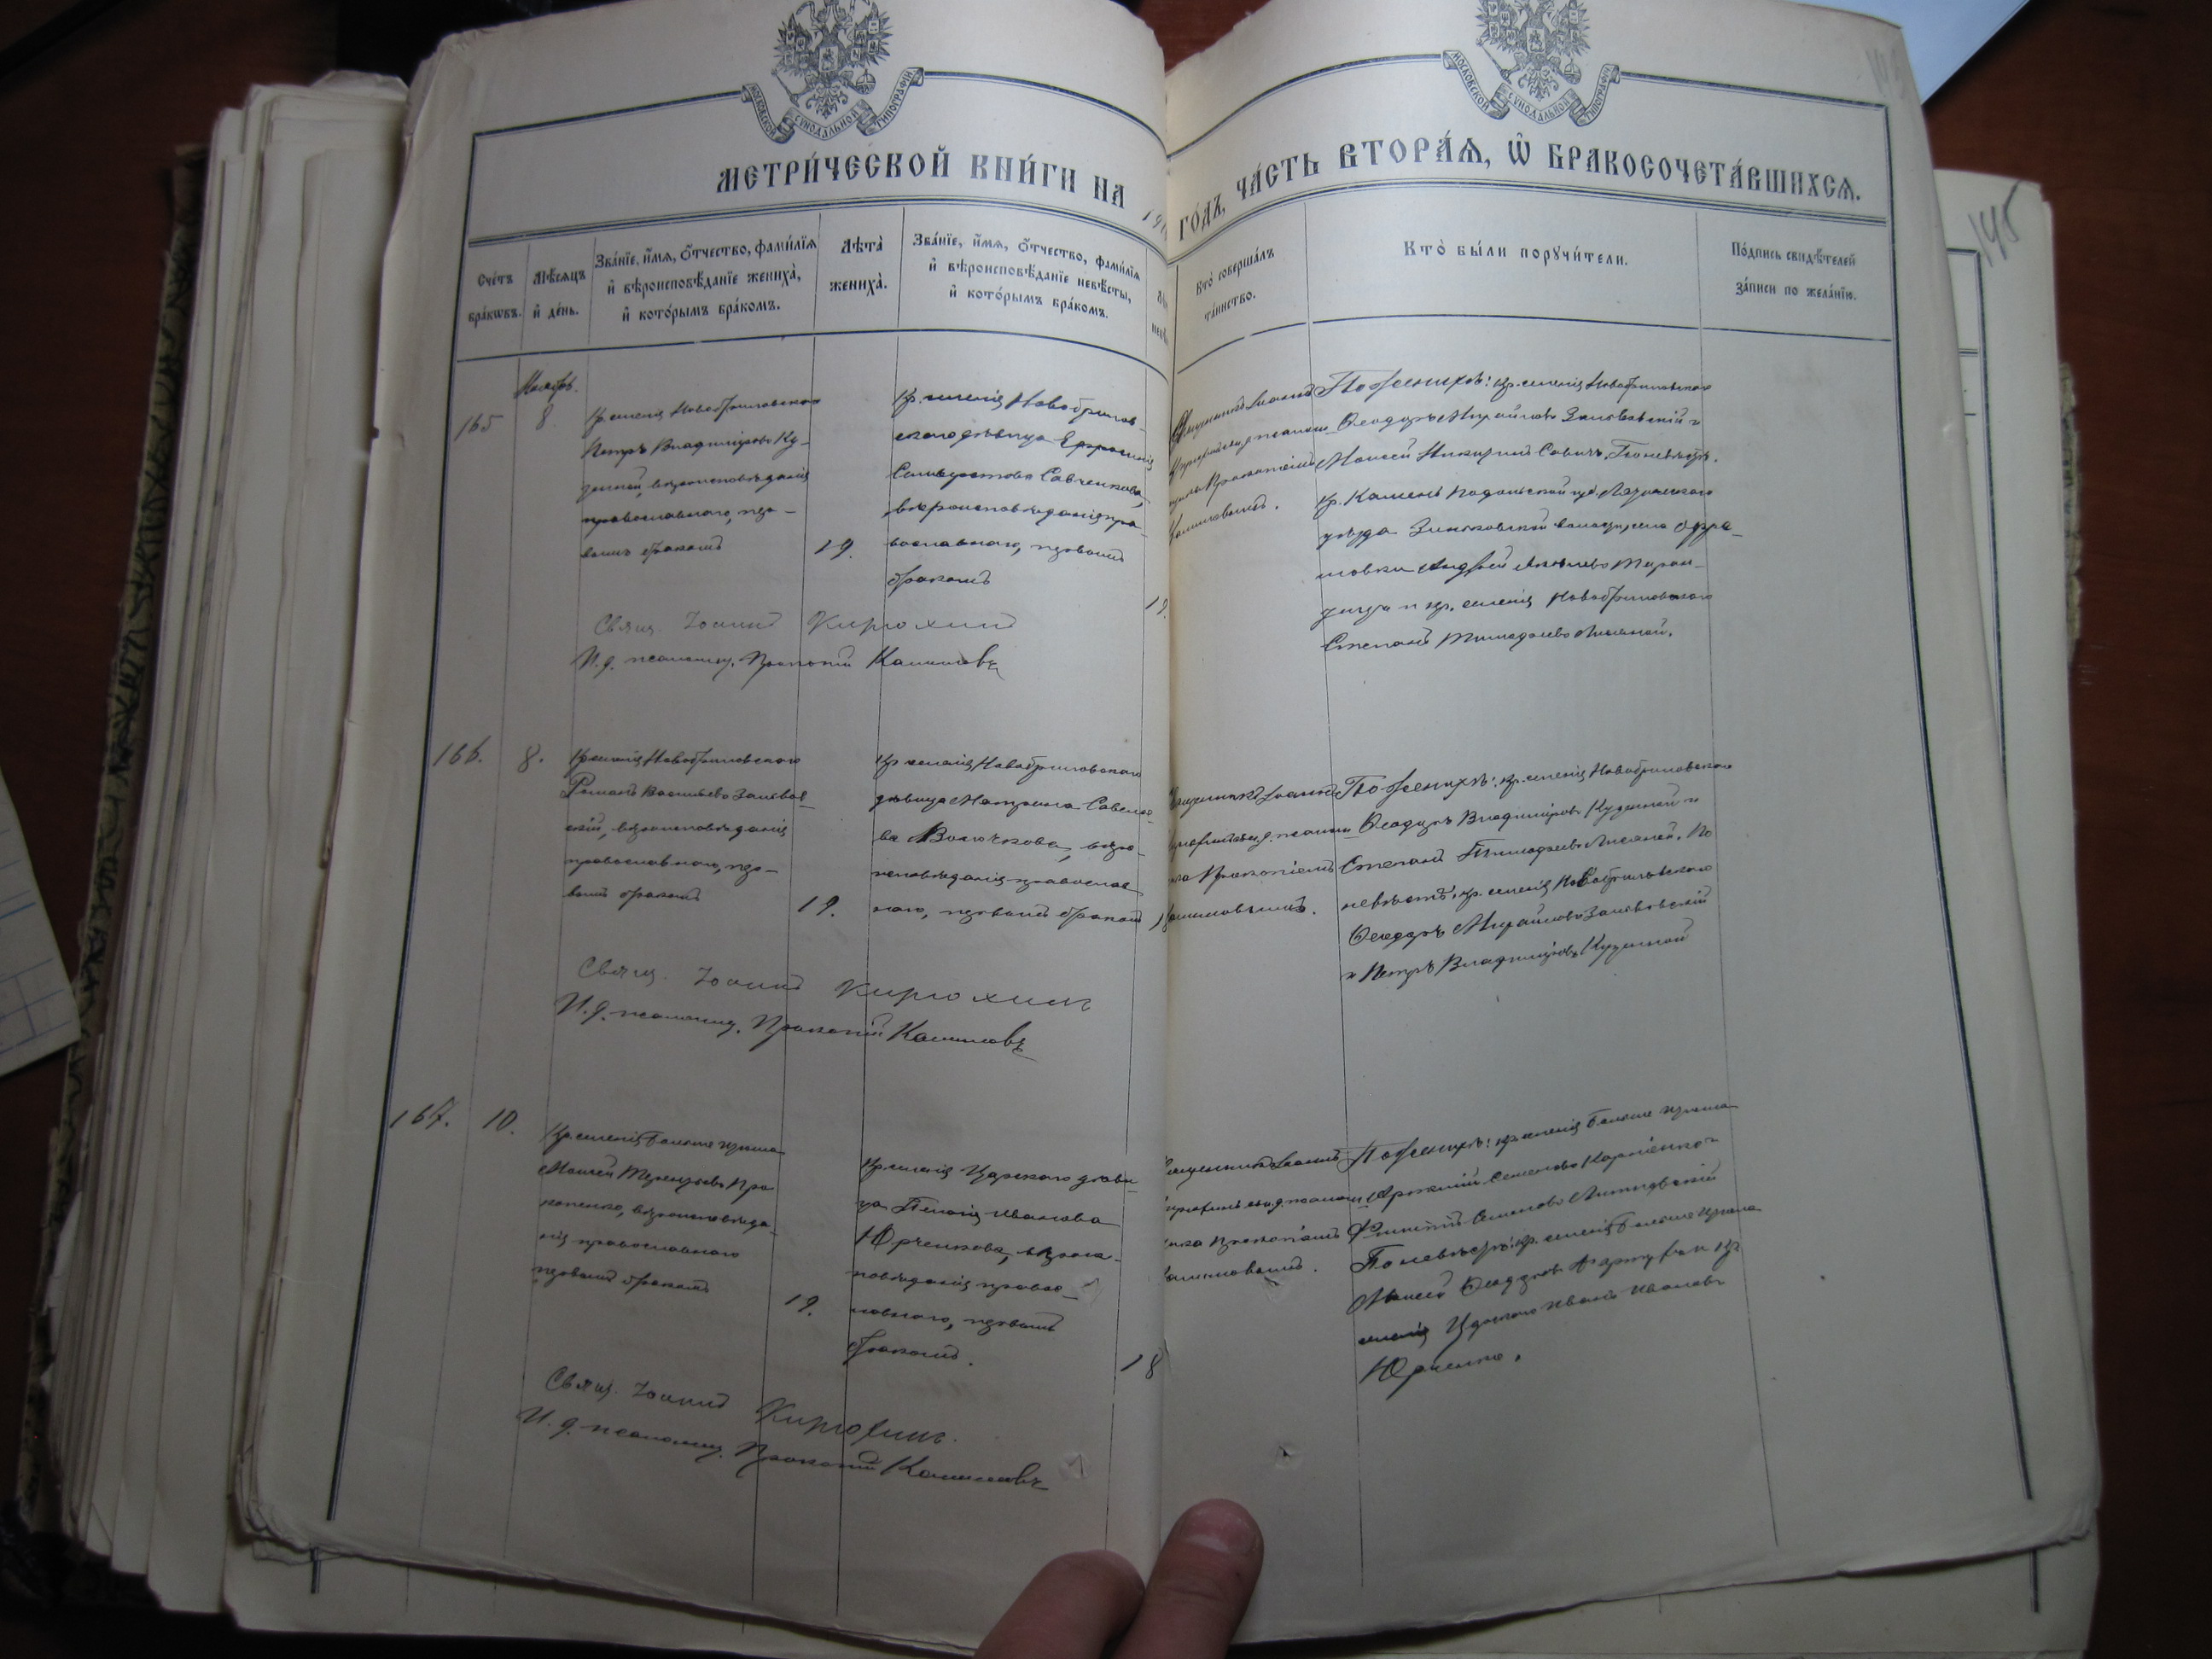 МОСКОВСКОЙ СУНОДАЛЬНОЙ ТИПОГРАФІИ
МОСКОВСКОЙ СУНОДАЛЬНОЙ ТИПОГРАФІИ
МЕТРИ́ЧЕСКОЙ КНИ́ГИ НА 19
ГО́ДЪ, ЧА́СТЬ ВТОРА́Ѧ, Ѡ҆ БРАКОСОЧЕТА́ВШИХСѦ.
145
Сче́тъ
бра́кѡвъ.
Мѣ́сяцъ
и҆ де́нь.
Зва́нїе, и҆́мѧ, ѻ҆́тчество, фами́лїѧ
и҆ вѣроисповѣ́данїе жениха̀,
и҆ кото́рымъ бра́комъ.
Лѣта̀
жениха̀.
Зва́нїе, и҆́мѧ, ѻ҆́тчество, фами́лїѧ
и҆ вѣроисповѣ́данїе невѣ́сты,
и҆ кото́рымъ бра́комъ.
Кто̀ соверша́лъ
та́инство.
Кто̀ бы́ли порꙋчи́тели.
По́дпись свидѣ́телей
за́писи по жела́нїю.
165
Ноябрь
8
Кр. селенія Новобриловскаго
Петръ Владиміровъ Ку-
земной, вѣроисповѣданія
православнаго, пер-
вымъ бракомъ
19.
Кр. селенія Новобрилов-
скаго дѣвица Ефросинія
Савченкова,
вѣроисповѣданія пра-
вославнаго, первымъ
бракомъ
19.
Священникъ Іоаннъ
Прокопіемъ
Калиновымъ.
По женихѣ: кр. селенія Новобриловскаго
Ѳеодоръ Михайловъ и
Моисей Савичъ. По невѣстѣ:
кр. Подольской губ.
уѣзда Зиньковской волости, села
Андрей
и кр. селенія Новобриловскаго
Степанъ Тимоѳеевъ
Свящ. Іоаннъ Кирюхинъ
И. д. псаломщ. Прокопій Калиновъ
166.
8.
Кр. селенія Новобриловскаго
Романъ Васильевъ
вѣроисповѣданія
православнаго, пер-
вымъ бракомъ
19.
Кр. селенія Новобриловскаго
дѣвица Матрона Савель-
ва Волочкова, вѣро-
исповѣданія православ-
наго, первымъ бракомъ
Священникъ Іоаннъ
Прокопіемъ
Калиновымъ.
По женихѣ: кр. селенія Новобриловскаго
Ѳеодоръ Владиміровъ Куземной и
Степанъ Тимоѳеевъ По
невѣстѣ: кр. селенія Новобриловскаго
Ѳеодоръ Михайловъ
и Петръ Владиміровъ Куземной
Свящ. Іоаннъ Кирюхинъ
И. д. псаломщ. Прокопій Калиновъ
167.
10.
Кр. селенія
Моисей Терентьевъ Про-
копенко, вѣроисповѣда-
нія православнаго
первымъ бракомъ
19.
Кр. селенія Царскаго дѣви-
ца Пелагія Иванова
Юрченкова, вѣроис-
повѣданія правос-
лавнаго, первымъ
бракомъ.
18
Священникъ Іоаннъ
Прокопіемъ
Калиновымъ.
По женихѣ: кр. селенія
Семеновъ и
Филиппъ Семеновъ
По невѣстѣ: кр. селенія
Моисей Ѳеодоровъ и кр.
селенія Царскаго Иванъ Ивановъ
Юрченко.
Свящ. Іоаннъ Кирюхинъ.
И. д. псаломщ. Прокопій Калиновъ